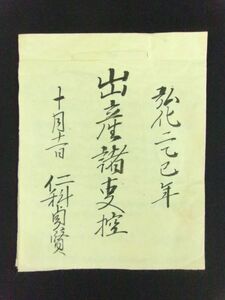 弘化二乙巳年
出産諸事控
十月十一日 仁科